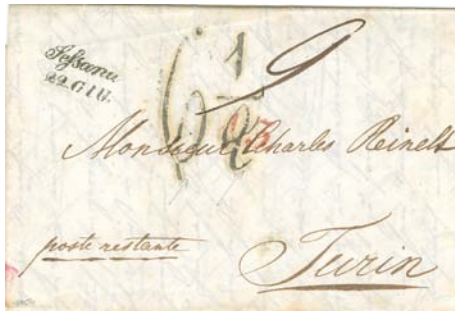 Sessana
22 GIU.
6 1/2
9
Monsieur Charles Reinelt
poste restante
Turin